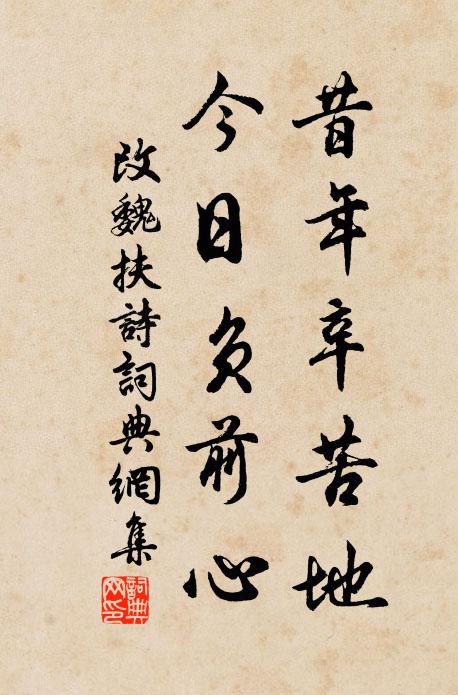 昔年辛苦地
今日负前心
改魏扶詩詞典網集
詞典
网印